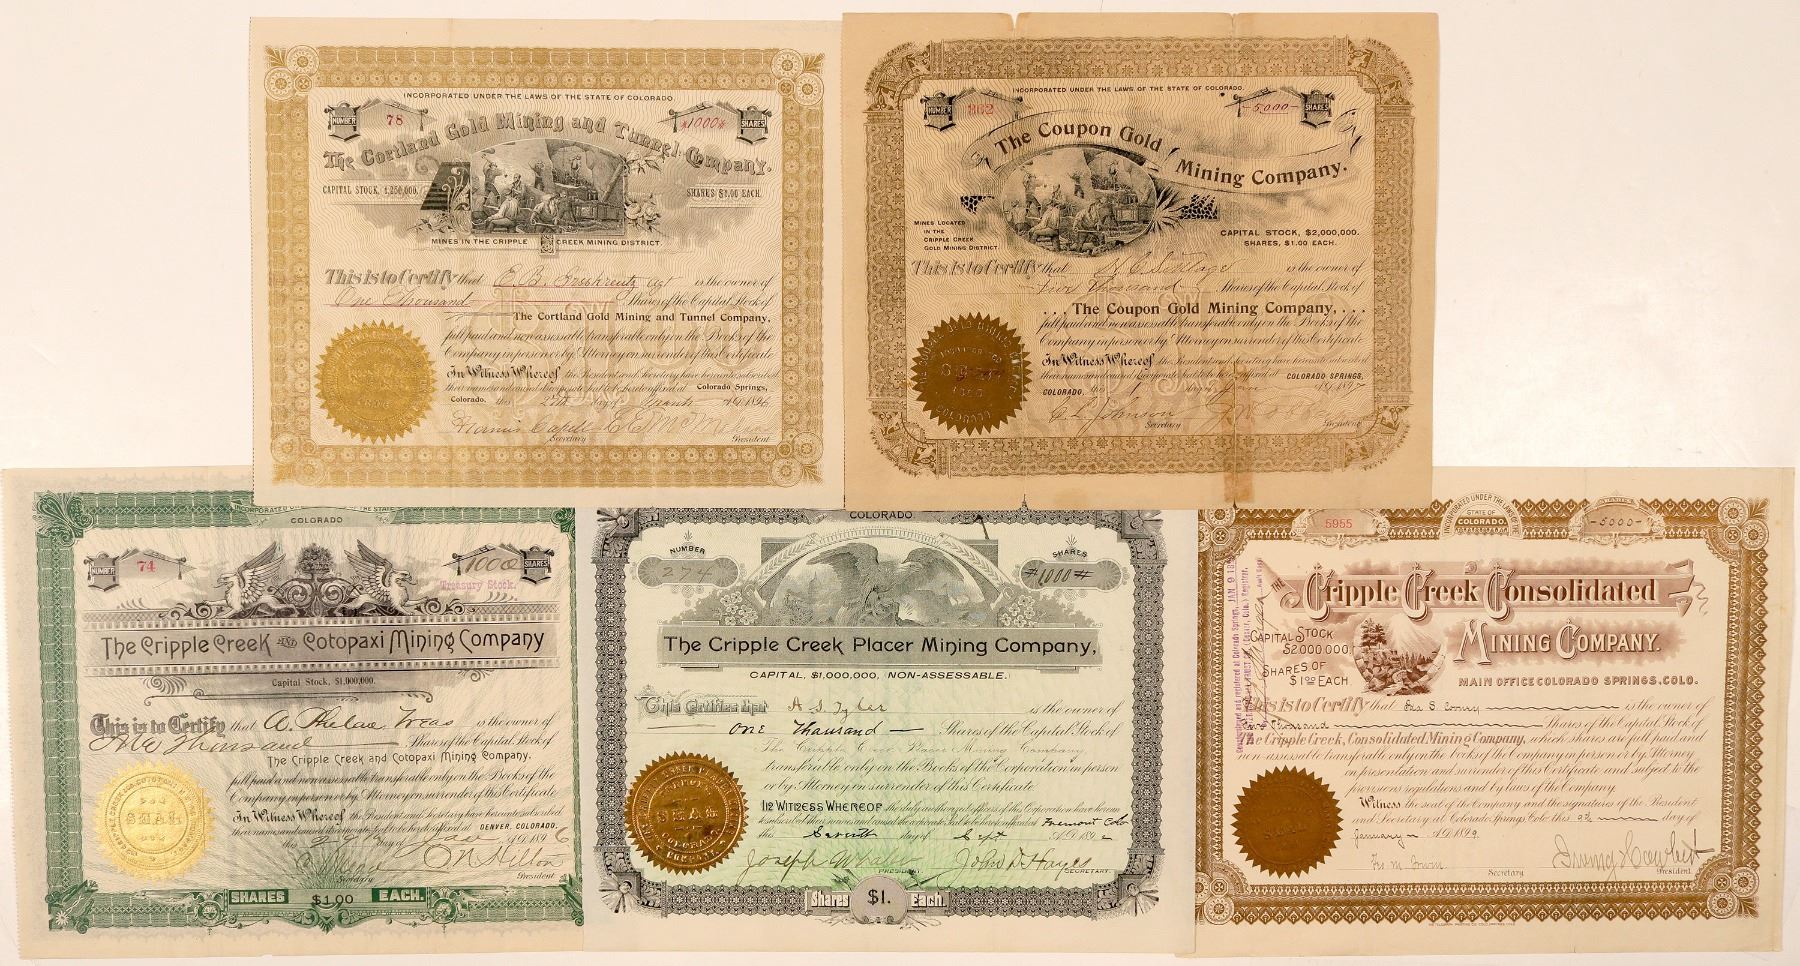 INCORPORATED UNDER THE LAWS OF THE STATE OF COLORADO
NUMBER 78
1000 SHARES
The Cortland Gold Mining and Tunnel Company.
CAPITAL STOCK, 1,250,000.
SHARES $1.00 EACH.
MINES IN THE CRIPPLE CREEK MINING DISTRICT.
This is to Certify that
is the owner of
One Thousand Shares of the Capital Stock of
The Cortland Gold Mining and Tunnel Company,
full paid and non assessable transferable only on the Books of the
Company in person or by Attorney on surrender of this Certificate
In Witness Whereof the President and Secretary have hereunto subscribed
their names and caused the corporate Seal to be hereto affixed at Colorado Springs,
Colorado, this day of A.D. 1896
Secretary President
INCORPORATED UNDER THE LAWS OF THE STATE OF COLORADO.
NUMBER 362
-5000- SHARES
The Coupon Gold Mining Company.
MINES LOCATED
IN THE
CRIPPLE CREEK
GOLD MINING DISTRICT.
CAPITAL STOCK, $2,000,000.
SHARES, $1.00 EACH.
This is to Certify that is the owner of
Five Thousand Shares of the Capital Stock of
. . . The Coupon Gold Mining Company, . . .
full paid and non assessable transferable only on the Books of the
Company in person or by Attorney on surrender of this Certificate
In Witness Whereof the President and Secretary have hereunto subscribed
their names and caused the corporate Seal to be hereto affixed at COLORADO SPRINGS,
COLORADO, this 1 day of June 1897
C L Johnson
Secretary President
COLORADO
NUMBER 74
1000 SHARES
Treasury Stock.
The Cripple Creek AND Cotopaxi Mining Company
Capital Stock, $1,000,000.
This is to Certify that is the owner of
Thousand Shares of the Capital Stock of
The Cripple Creek and Cotopaxi Mining Company.
full paid and non assessable transferable only on the Books of the
Company in person or by Attorney on surrender of this Certificate
In Witness Whereof the President and Secretary have hereunto subscribed
their names and caused the corporate Seal to be hereto affixed at DENVER, COLORADO.
this day of A.D. 1896
Secretary President
SEAL
SHARES $1.00 EACH.
COLORADO.
NUMBER
274
SHARES
#1000#
The Cripple Creek Placer Mining Company,
CAPITAL, $1,000,000, NON-ASSESSABLE.
This Certifies that A. S. Tyler is the owner of
One Thousand Shares of the Capital Stock of
The Cripple Creek Placer Mining Company,
transferable only on the Books of the Corporation in person
or by Attorney on surrender of this Certificate
IN WITNESS WHEREOF the duly authorized officers of this Corporation have hereunto
subscribed their names and caused the corporate Seal to be hereto affixed at Fremont Colo
this Seventh day of Sept A.D. 1892
PRESIDENT. John D. Hayes SECRETARY.
SEAL
Shares $1. Each.
5955
INCORPORATED UNDER THE LAWS OF THE
STATE OF
COLORADO
SHARES
-5000-
THE Cripple Creek Consolidated
MINING COMPANY.
CAPITAL STOCK
$2,000,000
SHARES OF
$1.00 EACH.
MAIN OFFICE COLORADO SPRINGS, COLO.
This is to Certify that is the owner of
Five Thousand Shares of the Capital Stock of
The Cripple Creek, Consolidated Mining Company, which shares are full paid and
non-assessable transferable only on the books of the Company in person or by Attorney
on presentation and surrender of this Certificate and subject to the
provisions regulations and by laws of the Company.
Witness the seal of the Company and the signatures of the President
and Secretary at Colorado Springs Colo. this 9th day of
January A.D. 1899
Secretary President